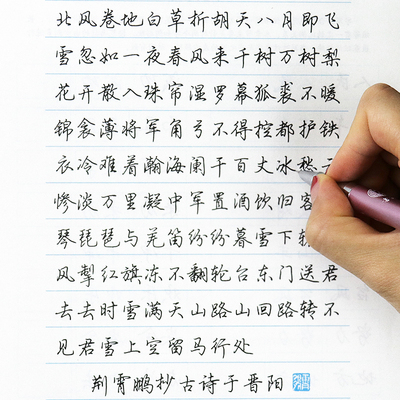 北风卷地白草折胡天八月即飞
雪忽如一夜春风来千树万树梨
花开散入珠帘湿罗幕狐裘不暖
锦衾薄将军角弓不得控都护铁
衣冷难着瀚海阑干百丈冰愁
惨淡万里凝中军置酒饮归客
琴琵琶与羌笛纷纷暮雪下
风掣红旗冻不翻轮台东门送君
去去时雪满天山路山回路转不
见君雪上空留马行处
荆霄鹏抄古诗于晋阳